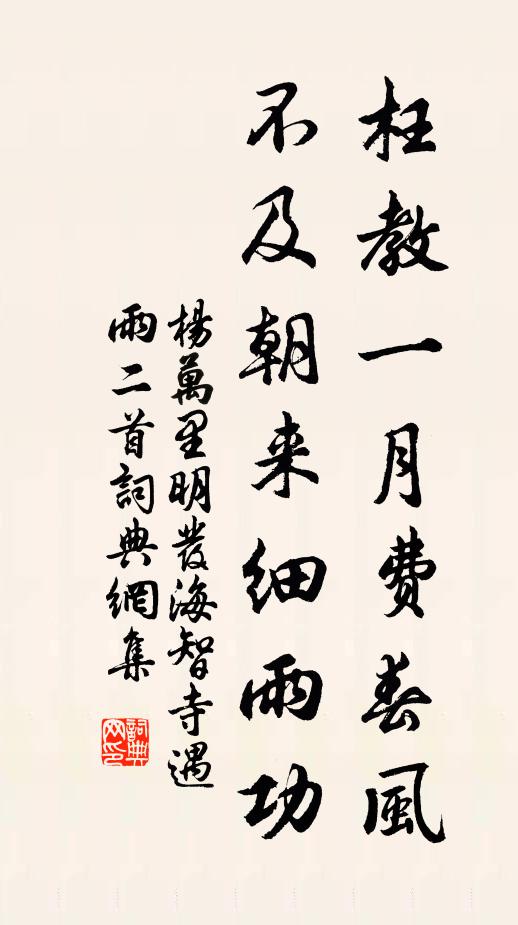 枉教一月費春風
不及朝来細雨功
楊萬里明發海智寺遇
雨二首詞典網集
詞典網印